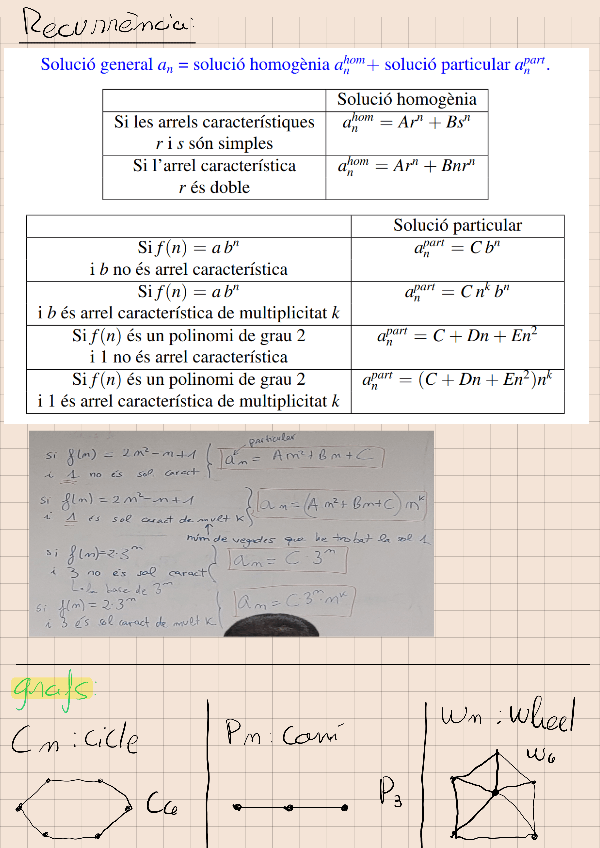 Recurrència:
Solució general aₙ = solució homogènia aₙʰᵒᵐ + solució particular aₙᵖᵃʳᵗ.
Solució homogènia
Si les arrels característiques
r i s són simples
aₙʰᵒᵐ = Arⁿ + Bsⁿ
Si l'arrel característica
r és doble
aₙʰᵒᵐ = Arⁿ + Bnrⁿ
Solució particular
Si f(n) = a bⁿ
i b no és arrel característica
aₙᵖᵃʳᵗ = C bⁿ
Si f(n) = a bⁿ
i b és arrel característica de multiplicitat k
aₙᵖᵃʳᵗ = C nᵏ bⁿ
Si f(n) és un polinomi de grau 2
i 1 no és arrel característica
aₙᵖᵃʳᵗ = C + Dn + En²
Si f(n) és un polinomi de grau 2
i 1 és arrel característica de multiplicitat k
aₙᵖᵃʳᵗ = (C + Dn + En²)nᵏ
particular
si f(n) = 2n²-n+1
i 1 no és sol caract
aₙ = An²+Bn+C
si f(n) = 2n²-n+1
i 1 és sol caract de mult k
aₙ = (An²+Bn+C)nᵏ
núm de vegades que he trobat la sol 1
si f(n)=2·3ⁿ
i 3 no és sol caract
aₙ = C·3ⁿ
la base de 3ⁿ
si f(n) = 2·3ⁿ
i 3 és sol caract de mult k
aₙ = C3ⁿ·nᵏ
grafs:
Cn: cicle
C6
Pn: camí
P3
Wn: wheel
W6